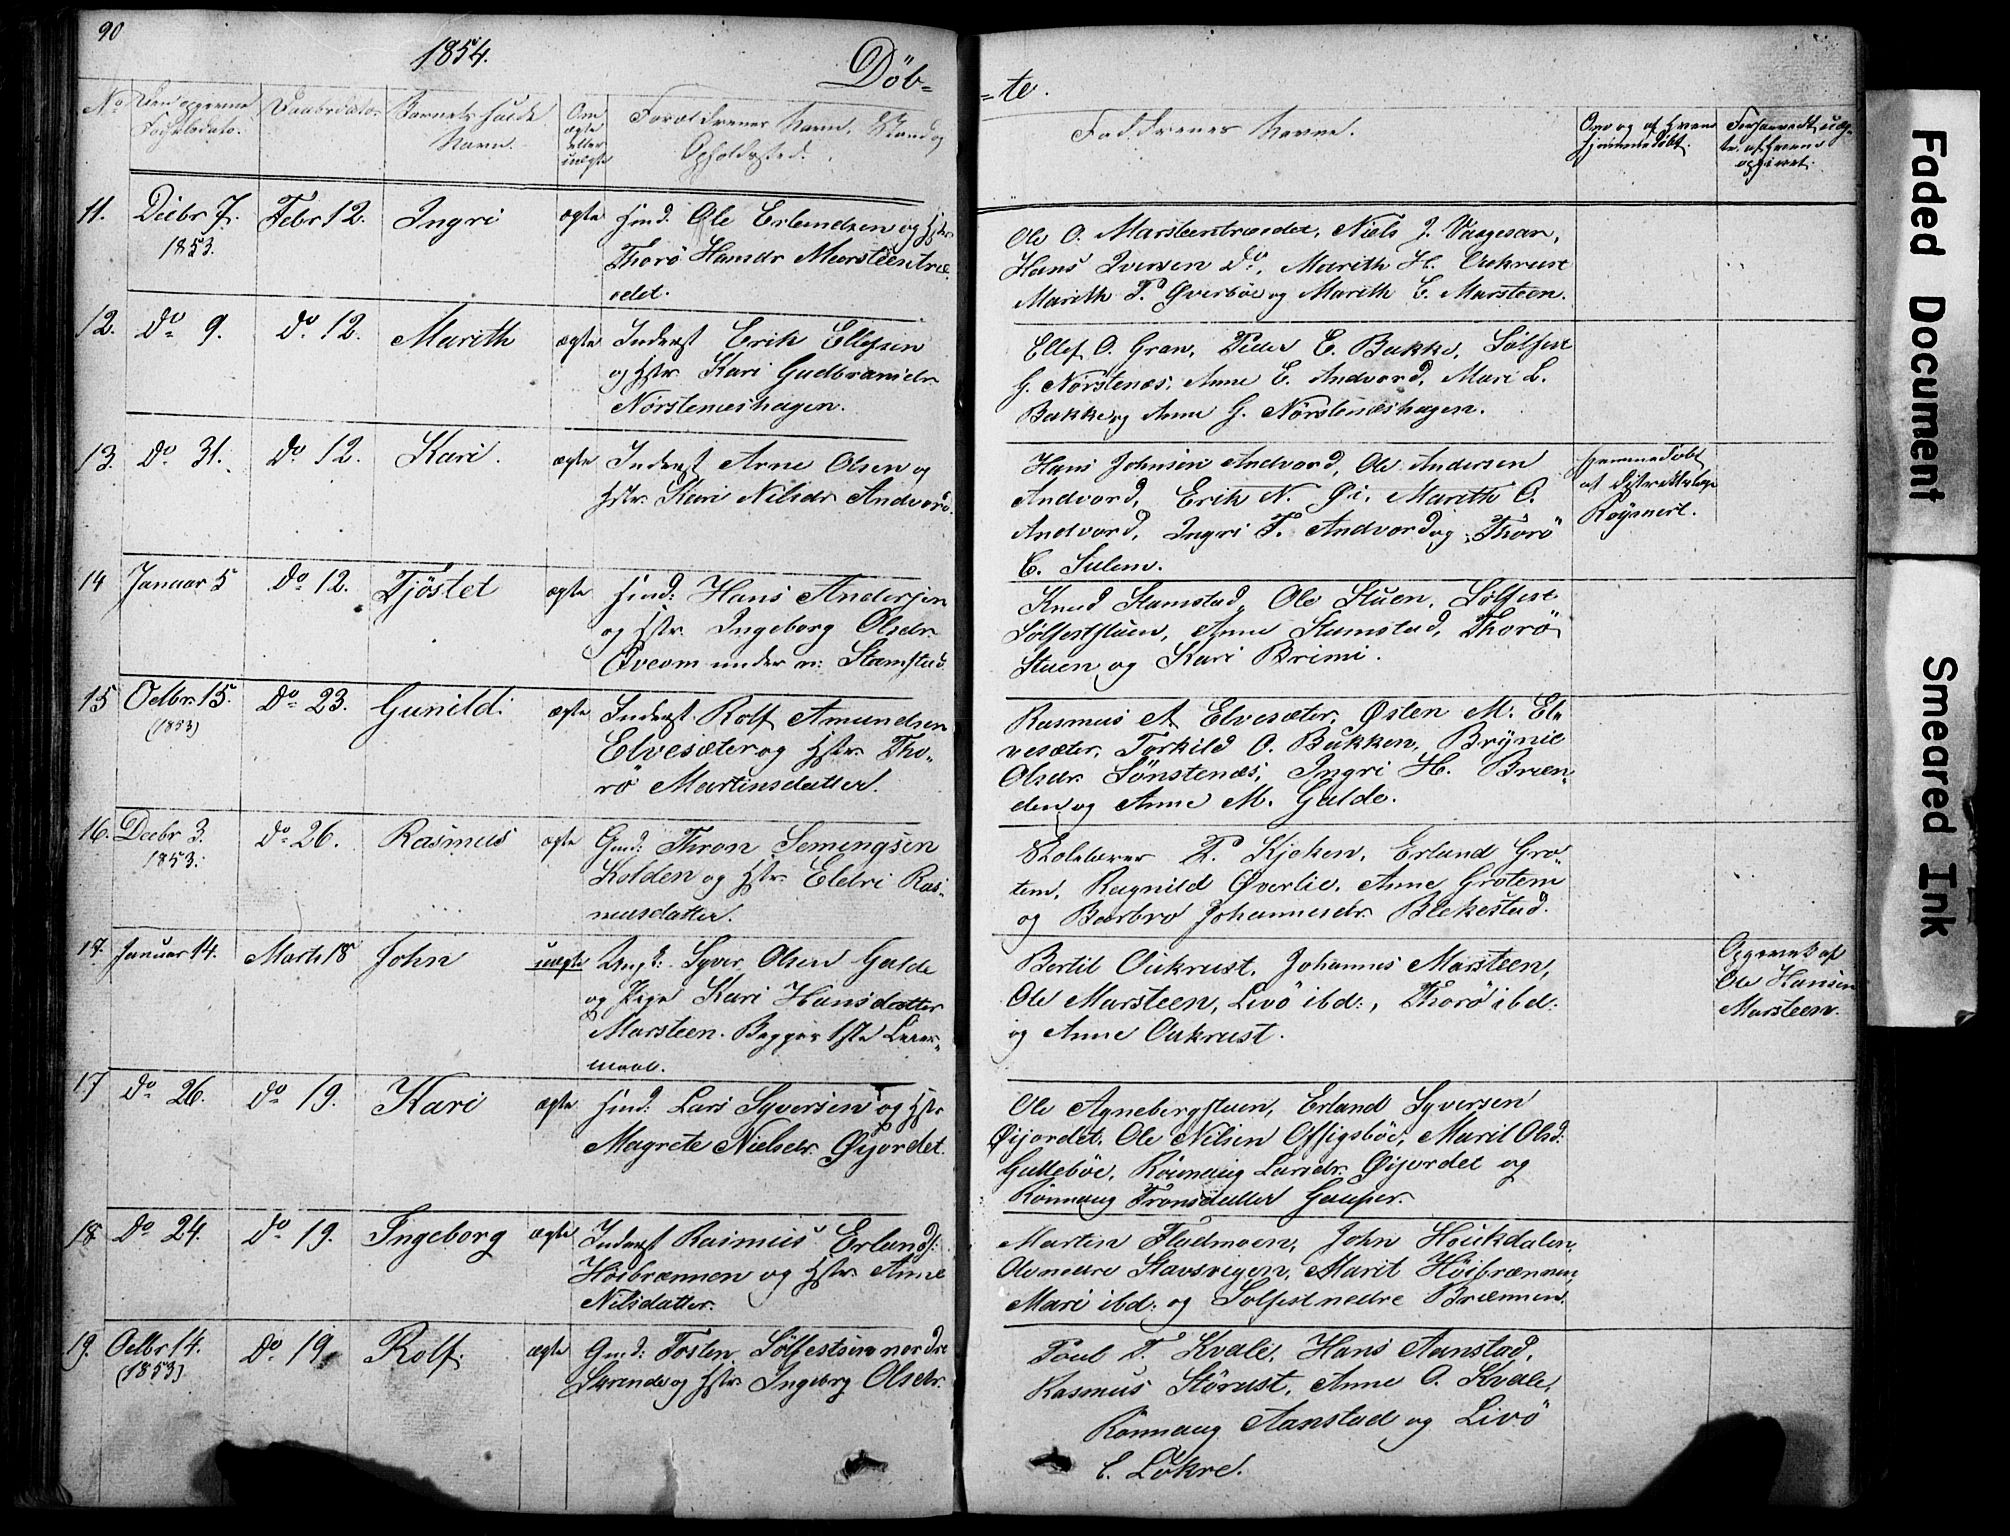 90
1854.
Döb-
-te.
No
Den opgivne Fødselsdato.
Daabsdato.
Barnets fulde Navn.
Om ægte eller uægte
Forældrenes Navn, Stand og Opholdssted.
Faddrenes Navne.
11. Decbr 7. 1853. Febr 12. Ingri ægte
Huusmd. Ole Erlendsen og Hstr.
Thorö Hansdr Marsteintræ
edet.
Ole O. Marsteentrædet, Niels J. Vaagesar,
Hans Iversen do, Marith H. Aukrust
Marith T. Øverböe og Marith E. Marsteen.
12. do 9. do 12. Marith ægte
Inderst Erik Ellefsen
og Hstr. Kari Gudbrandsdr
Nörstenæshagen.
Ellef O. Gran, Peder E. Bakke, Sölfest
G. Nörstenæs, Anne E. Andvord, Mari L.
Bakke og Anne G. Nörstenæshagen.
13. do 31. do 12. Kari. ægte
Inderst Arne Olsen og
Hstr. Kari Nilsdr Andvord.
Hans Johnsen Andvord, Ole Andersen
Andvord, Erik N. Øi, Marith O.
Andvord, Ingri T. Andvord og Thorö
E. Sulem.
Hjemmedöbt
af Distriktslæge
14 Januar 5 do 12. Tjöstel ægte
Hans Andersen
og Hstr. Ingeborg Olsdr.
under n: Stamstad.
Knud Stamstad, Ole Stuen, Sölfest
Sölfeststuen, Anne Stamstad, Thorö
Stuen og Kari Brimi.
15 Octbr. 15. (1853) do 23. Gunild. ægte
Inderst Rolf Amundsen
Elvesæter og Hstr. Tho-
rö Martinsdatter.
Rasmus A Elvesæter, Østen M. El-
vesæter, Torkild O. Bakken, Brynil
Olsdr. Sönstenæs, Ingri H. Bræn-
den og Anne M. Galde.
16. Decbr 3. 1853. do 26. Rasmus ægte
Gmd: Thron Semingsen
Kolden og Hstr. Eldri Ras-
musdatter.
Skolelærer T. Kjæken, Erland Gro-
tem, Ragnild Øverlie, Anne Grotem
og Barbro Johannesdr. Blekestad.
17. Januar 14. Marts 18 John uægte
Ungk: Syver Olsen Galde
og Pige Kari Hansdatter
Marsteen. Begges 1ste Leier-
maal.
Bertil Aukrust, Johannes Marsteen,
Ole Marsteen, Livö ibd:, Thorö ibd:
og Anne Aukrust.
Opgivet af
Ole Hansen
Marsteen.
17 do 26. do 19. Kari ægte
Lars Syversen og Hstr
Magrete Nielsdr. Øijordet.
Ole Agnebergstuen, Erland Syversen
Øijordet. Ole Nilsen Offigsböe, Marit Olsd:
Gulleböe, Rönnaug Larsdr. Øijordet og
Rönnaug Tronsdatter Gaupar.
18. Do 24. do 19. Ingeborg ægte
Inderst Rasmus Erlands:
Höibrænnen og Hstr. Anne
Nilsdatter.
Martin Fladmoen, John Höukdalen,
Ole nedre Stavsvigen, Marit Höibrænnen,
Mari ibd: og Solfest nedre Brænnen.
19. Octbr 14. (1853) Do 19. Rolf. ægte
Gmd: Tosten Sölfestsen nordre
og Hstr. Ingeborg Olsdr.
Poul T. Kvale, Hans Aanstad,
Rasmus Störust, Anne O. Kvale,
Rönnaug Aanstad og Livö
E. Lökre.
Faded Document
Smeared Ink